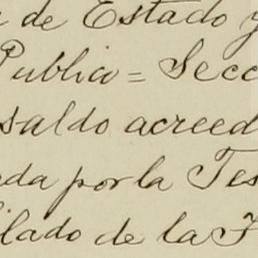 de Estado y
Publica = Secc
saldo acreed
da por la Tes
ilado de la F